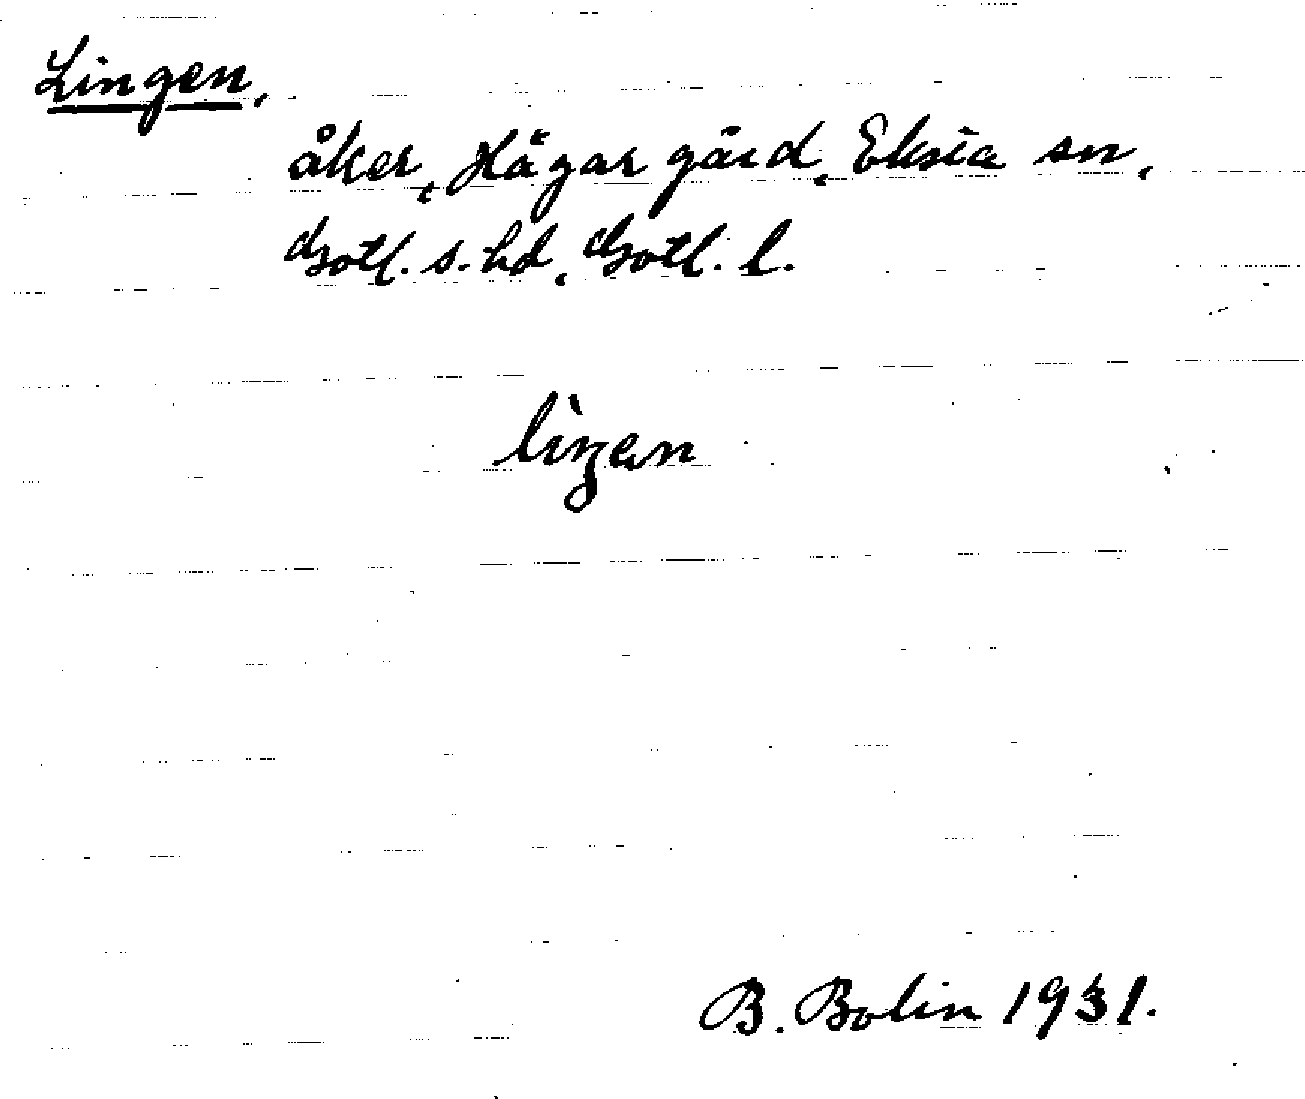 Lingen,
åker, Hägar gård, Eksta sn,
Gotl. s. hd, Gotl. l.
B. Bolin 1931.